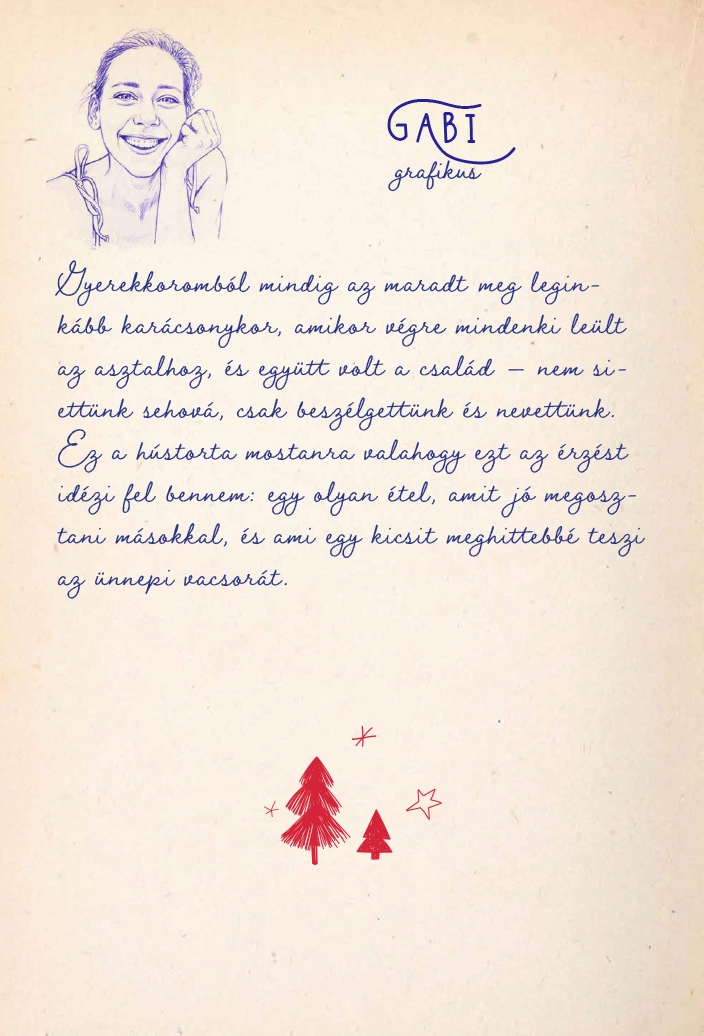 GABI
grafikus
Gyerekkoromból mindig az maradt meg legin-
kább karácsonykor, amikor végre mindenki leült
az asztalhoz, és együtt volt a család – nem si-
ettünk sehová, csak beszélgettünk és nevettünk.
Ez a hústorta mostanra valahogy ezt az érzést
idézi fel bennem: egy olyan étel, amit jó megosz-
tani másokkal, és ami egy kicsit meghittebbé teszi
az ünnepi vacsorát.